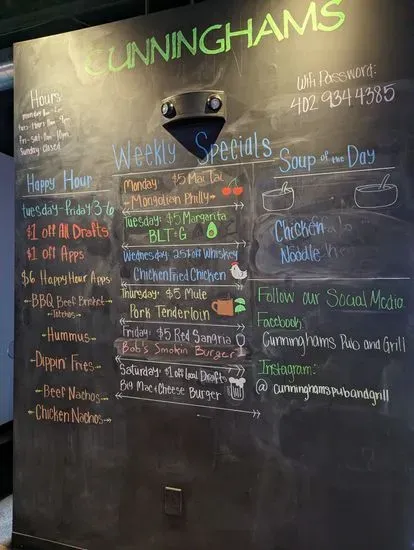 CUNNINGHAMS
Hours
Sunday Closed
Wifi Password:
402 934 4385
Weekly Specials
Happy Hour
tuesday-Friday 3-6
$1 off All Drafts
$1 off Apps
$6 Happy Hour Apps:
BBQ Beef Brisket
Nachos
Hummus
Dippin' Fries
Beef Nachos
Chicken Nachos
Monday $5 Mai Tai
Mongolian Philly
Tuesday: $5 Margarita
BLT+G
Wednesday: 25% off Whiskey
Chicken Fried Chicken
Thursday: $5 Mule
Pork Tenderloin
Friday: $5 Red Sangria
Bob's Smokin Burger
Saturday: $1 off Local Drafts
Big Mac + Cheese Burger
Soup of the Day
Chicken
Noodle
Follow our Social Media:
Facebook:
Cunninghams Pub and Grill
Instagram:
@cunninghamspubandgrill